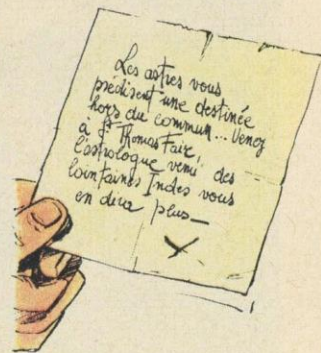 Les astres vous
prédisent une destinée
hors du commun... Venez
à St Thomas Fair,
l'astrologue venu des
lointaines Indes vous
en dira plus_
X